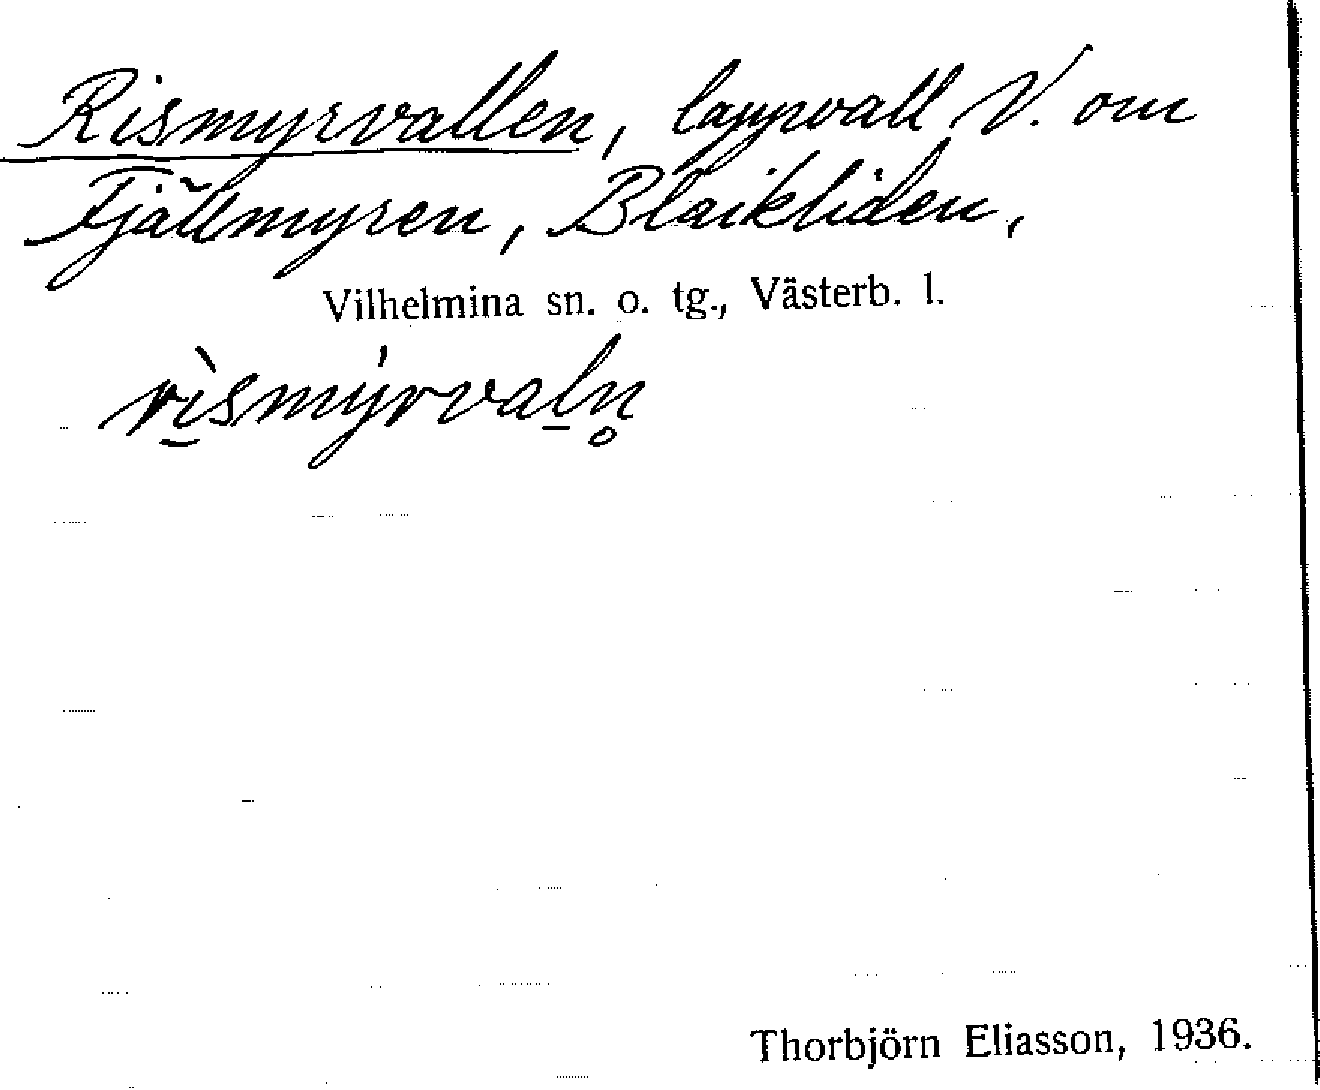 Rismyrvallen, lappvall V. om
Fjällmyren, Blaikliden,
Vilhelmina sn. o. tg., Västerb. l.
rı̲̀smýrval̲n̥
Thorbjörn Eliasson, 1936.